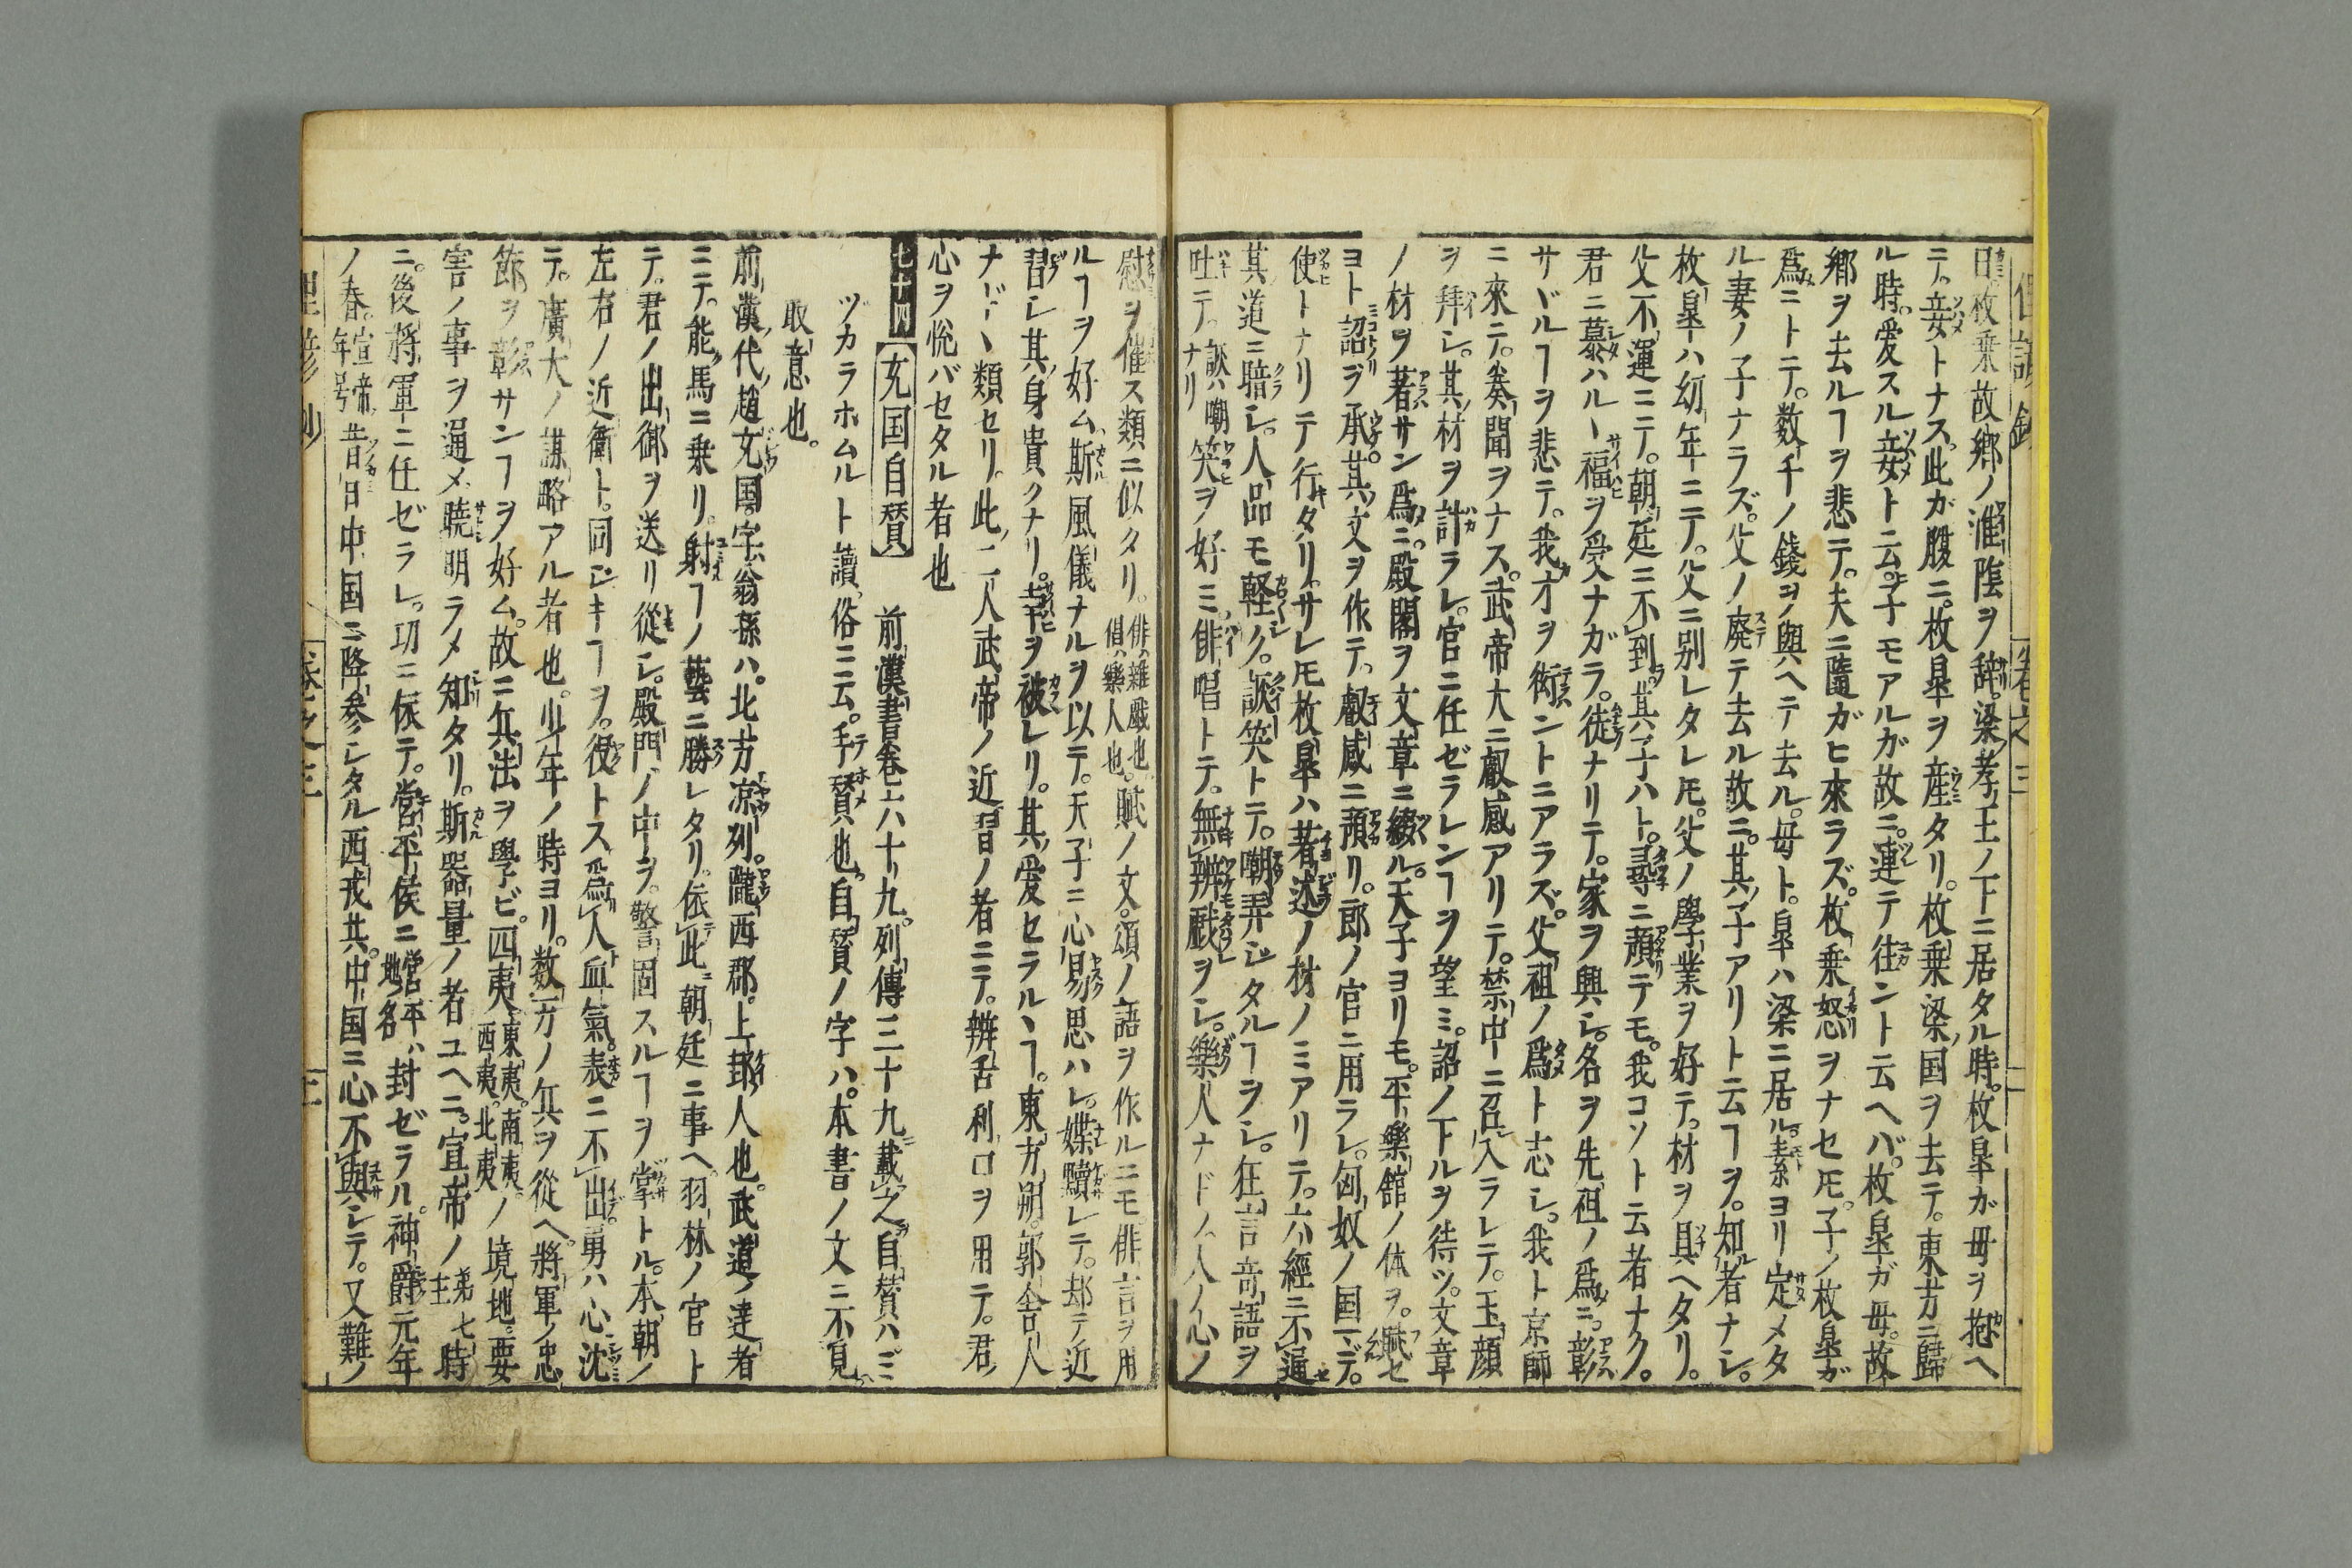 日。枚乗故郷ノ淮陰ヲ辞。梁孝王ノ下ニ居タル時。枚皐ガ母ヲ抱ヘ
テ。妾トナス。此ガ腹ニ。枚皐ヲ産タリ。枚乗梁国ヲ去テ。東方ニ歸
ル時。愛スル妾ト云。子モアルガ故ニ。連テ往ント云ヘバ。枚皐ガ母。故
郷ヲ去ルヿヲ悲テ。夫ニ隨ガヒ來ラズ。枚乗怒ヲナセ𪜈。子ノ枚皐ガ
爲ニトテ。数千ノ錢ヲ與ヘテ去ル。母ト。皐ハ梁ニ居ル。素ヨリ定メタ
ル妻ノ子ナラズ。父ノ廃テ去ル故ニ。其子アリト云ヿヲ。知者ナシ。
枚皐ハ幼年ニテ。父ニ別レタレ𪜈。父ノ學業ヲ好テ。材ヲ具ヘタリ。
父不運ニテ。朝廷ニ不到。其子ハト。尋ニ預テモ。我コソト云者ナク。
君ニ慕ハルヽ福ヲ受ナガラ。徒ナリテ。家ヲ興シ。名ヲ先祖ノ爲ニ。彰
サヾルヿヲ悲テ。我才ヲ衒ントニアラズ。父祖ノ爲ト志シ。我ト京師
ニ來ニテ。奏聞ヲナス。武帝大ニ叡感アリテ。禁中ニ召入ラレテ。玉顔
ヲ拜シ。其材ヲ計ラレ。官ニ任ゼラレンヿヲ望ミ。詔ノ下ルヲ待ツ。文章
ノ材ヲ著サン爲ニ。殿閣ヲ文章ニ綴ル。天子ヨリモ。平樂館ノ体ヲ。賦セ
ヨト詔ヲ承。其文ヲ作テ。叡感ニ預リ。郎ノ官ニ用ラレ。匈奴ノ国マデ。
使トナリテ行タリ。サレ𪜈枚皐ハ著述ノ材ノミアリテ。六經ニ不通
其道ニ暗シ。人品モ軽ク。詼笑トテ。嘲弄シタルヿヲシ。狂言竒語ヲ
吐ニテ。詼ハ嘲ナリ笑ヲ好ミ。俳唱トテ。無辨戯ヲシ。樂人ナドノ人ノ心ノ
慰ヲ催ス類ニ似タリ。俳ハ雜戯也。倡ハ樂人也。賦ノ文。頌ノ語ヲ作ルニモ。俳言ヲ用
ルヿヲ好ム。斯風儀ナルヲ以テ。天子ニ心易思ハレ。媟黷レテ。却テ近
習シ其身貴クナリ。幸ヲ被レリ。其愛セラルヽヿ。東方朔。郭舍人
ナドヽ類セリ。此二人武帝ノ近習ノ者ニテ。辨舌利口ヲ用テ。君
心ヲ悦バセタル者也
七十四 充国自賛 前漢書卷六十九。列傳三十九載之。自賛ハミ
ヅカラホムルト讀。俗ニ云。手賛也。自賛ノ字ハ。本書ノ文ニ不見。
取意也。
前漢代趙充国。字ハ翁孫ハ。北方凉列。隴西郡。上邽人也。武道ノ達者
ニテ。能馬ニ乗リ。射ヿノ藝ニ勝レタリ。依此朝廷ニ事ヘ。羽林ノ官ト
テ。君ノ出御ヲ送リ從シ。殿門ノ中ヲ。警固スルヿヲ掌トル。本朝ノ
左右ノ近衞ト。同シキヿヲ。役トス爲人血氣。表ニ不出。勇ハ心沈
テ。廣大ノ謀略アル者也。少年ノ時ヨリ。数万ノ兵ヲ從ヘ。將軍ノ忠
節ヲ彰サンヿヲ好ム。故ニ兵法ヲ學ビ。四夷東夷。南夷。西夷。北夷ノ境地。要
害ノ事ヲ通メ。曉明ラメ知タリ。斯器量ノ者ユヘニ。宣帝ノ第七主時
ニ。後將軍ニ任ゼラレ。功ニ依テ。營平侯ニ營平ハ地名封ゼラル。神爵元年
ノ春。宣帝年号昔日中国ニ降參シタル西戎共。中国ニ心不與シテ。又難ノ
俚諺鈔 卷之三 二
俚諺鈔 卷之三 三